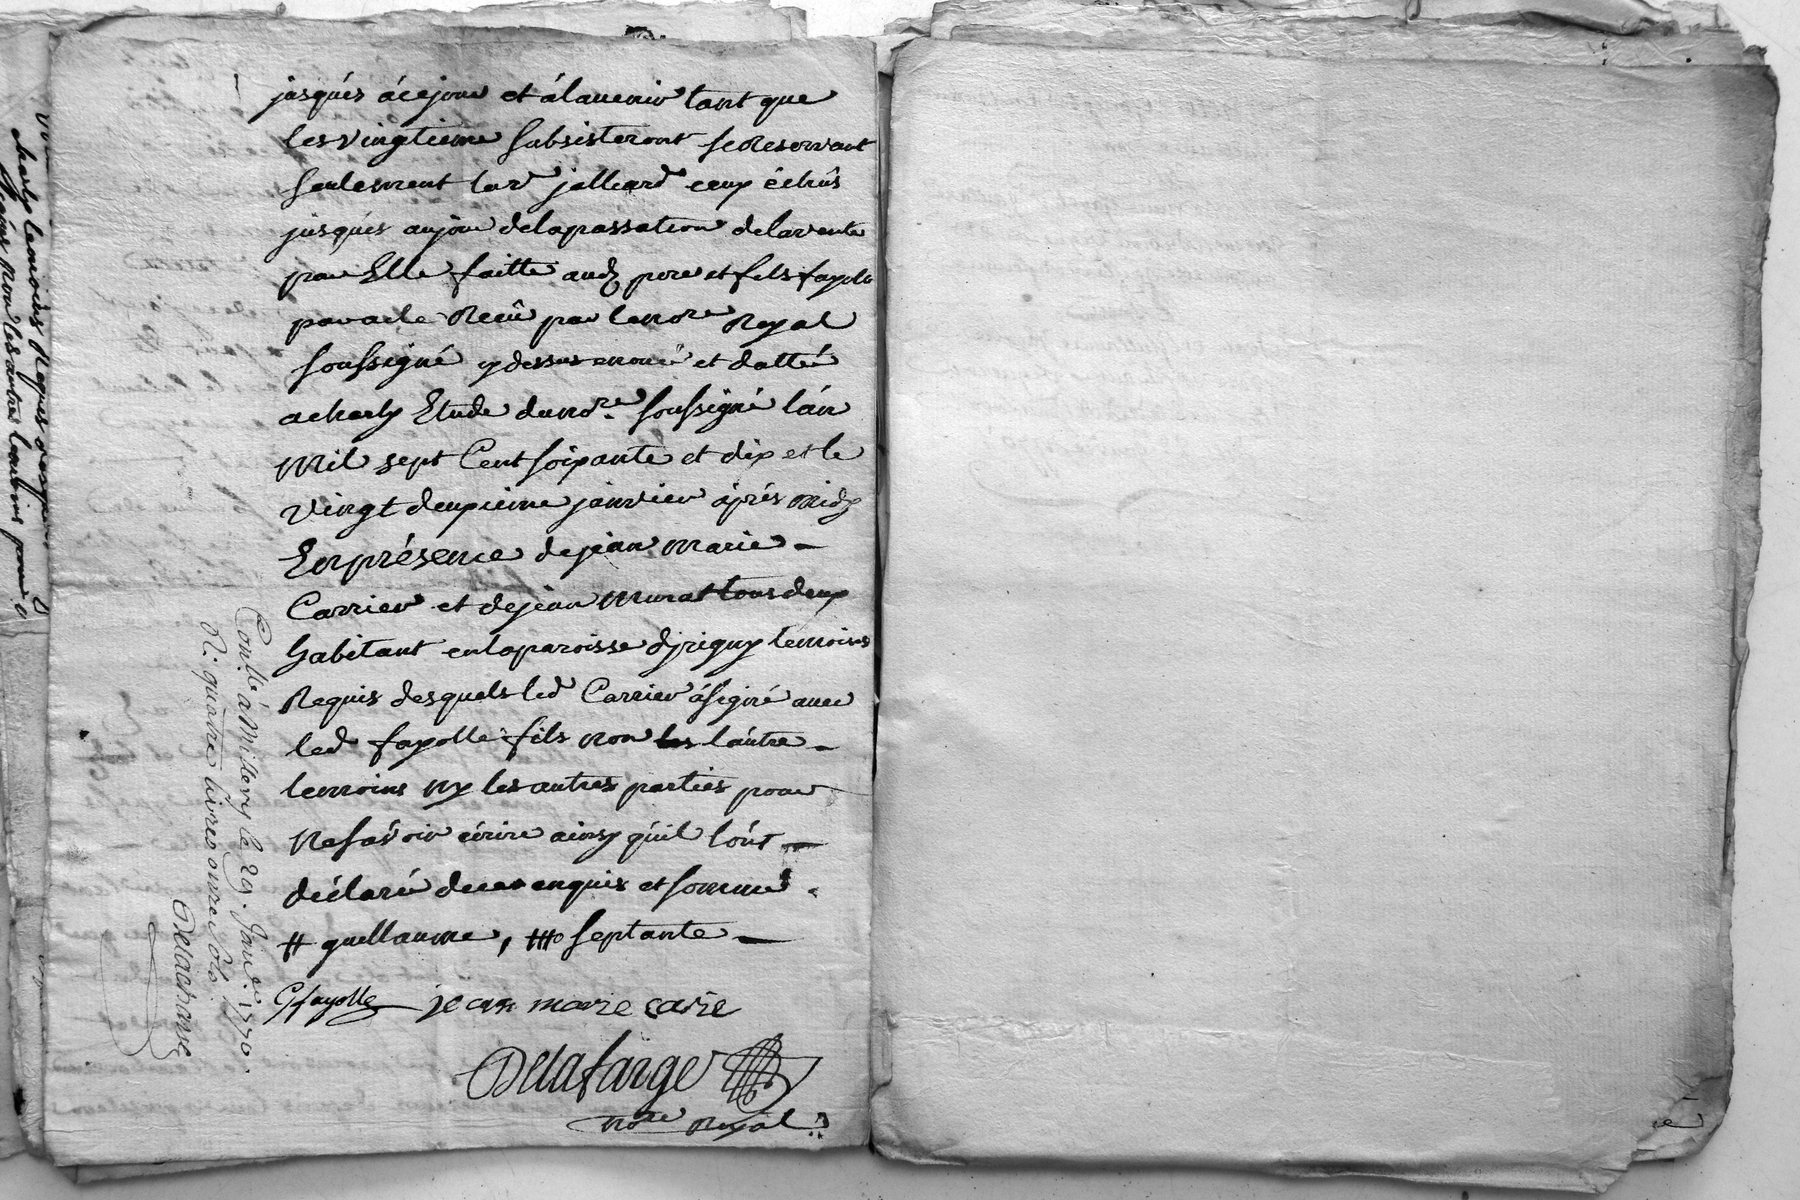 jusqués àcejour et álauenir tant que
les vingtieme subsisteront se Reservant
seulement lad jalliard ceux échûs
jusqués aujour delapassation delavente
par Elle faitte audz pere et fils fayolle
paracte Recû par lenore Royal
soussigné ydessus enoncé et datté
acharly Etude dunore. soussigné l'án
Mil sept Cent soixante et dix et le
vingt deuxieme janvier áprés midy
Enprésence dejean marie
Carrier et dejean murat tous deux
habitant enlaparoisse dirigny temoins
Requis desquels led Carrier ásigné avec
led fayolle fils non láutre
temoins ny les autres parties pour
Nesavoir écrire ainsy qúil lont
déclaré dece enquis et sommé.
# guellaume, septante
Gfayolle jean marie carie
Delafarge
nore Royal
Conllé à Millery le 29. Janer. 1770.
R. quatre livres onze sols
Delacharse
charly temoins Requis
pour les autres temoins pour